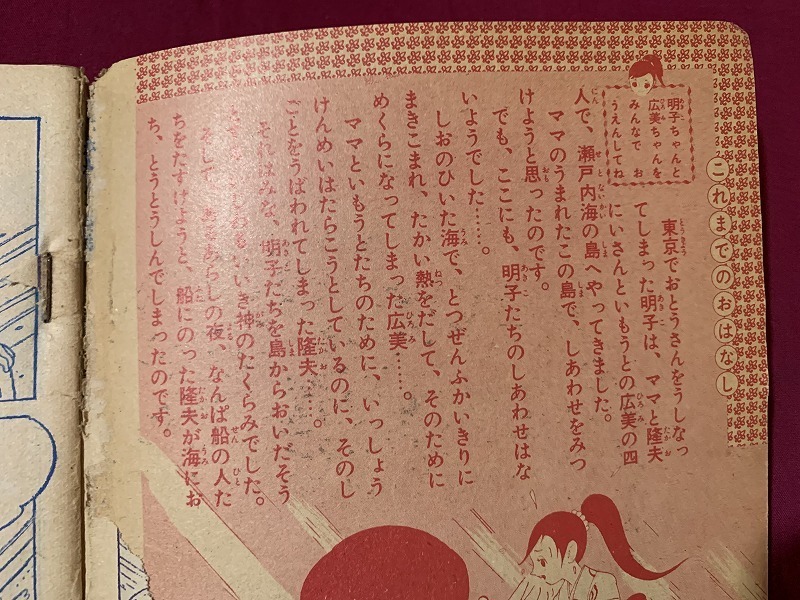 これまでのおはなし
明子ちゃんと
広美ちゃんを
みんなで お
うえんしてね
東京でおとうさんをうしなっ
てしまった明子は、ママと隆夫
にいさんといもうとの広美の四
人で、瀬戸内海の島へやってきました。
ママのうまれたこの島で、しあわせをみつ
けようと思ったのです。
でも、ここにも、明子たちのしあわせはな
いようでした……。
しおのひいた海で、とつぜんふかいきりに
まきこまれ、たかい熱をだして、そのために
めくらになってしまった広美……。
ママといもうとたちのために、いっしょう
けんめいはたらこうとしているのに、そのし
ごとをうばわれてしまった隆夫……。
それはみな、明子たちを島からおいだそう
いき神のたくらみでした。
そして、あらしの夜、なんぱ船の人た
ちをたすけようと、船にのった隆夫が海にお
ち、とうとうしんでしまったのです。